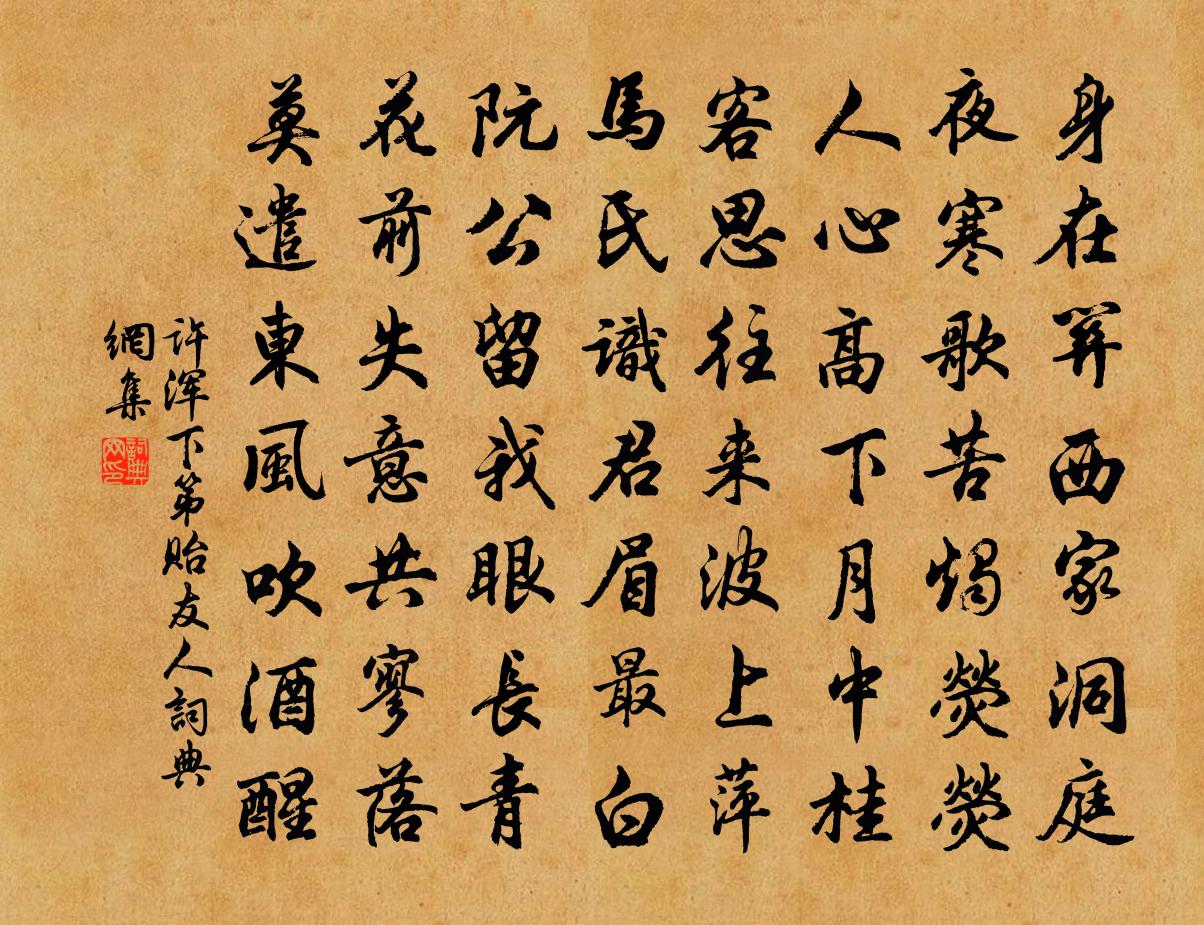 身在關西家洞庭
夜寒歌苦燭熒熒
人心高下月中桂
客思往来波上萍
馬氏識君眉最白
阮公留我眼長青
花前失意共寥落
莫遣東風吹酒醒
許渾下第貽友人詞典
網集
詞典
网印